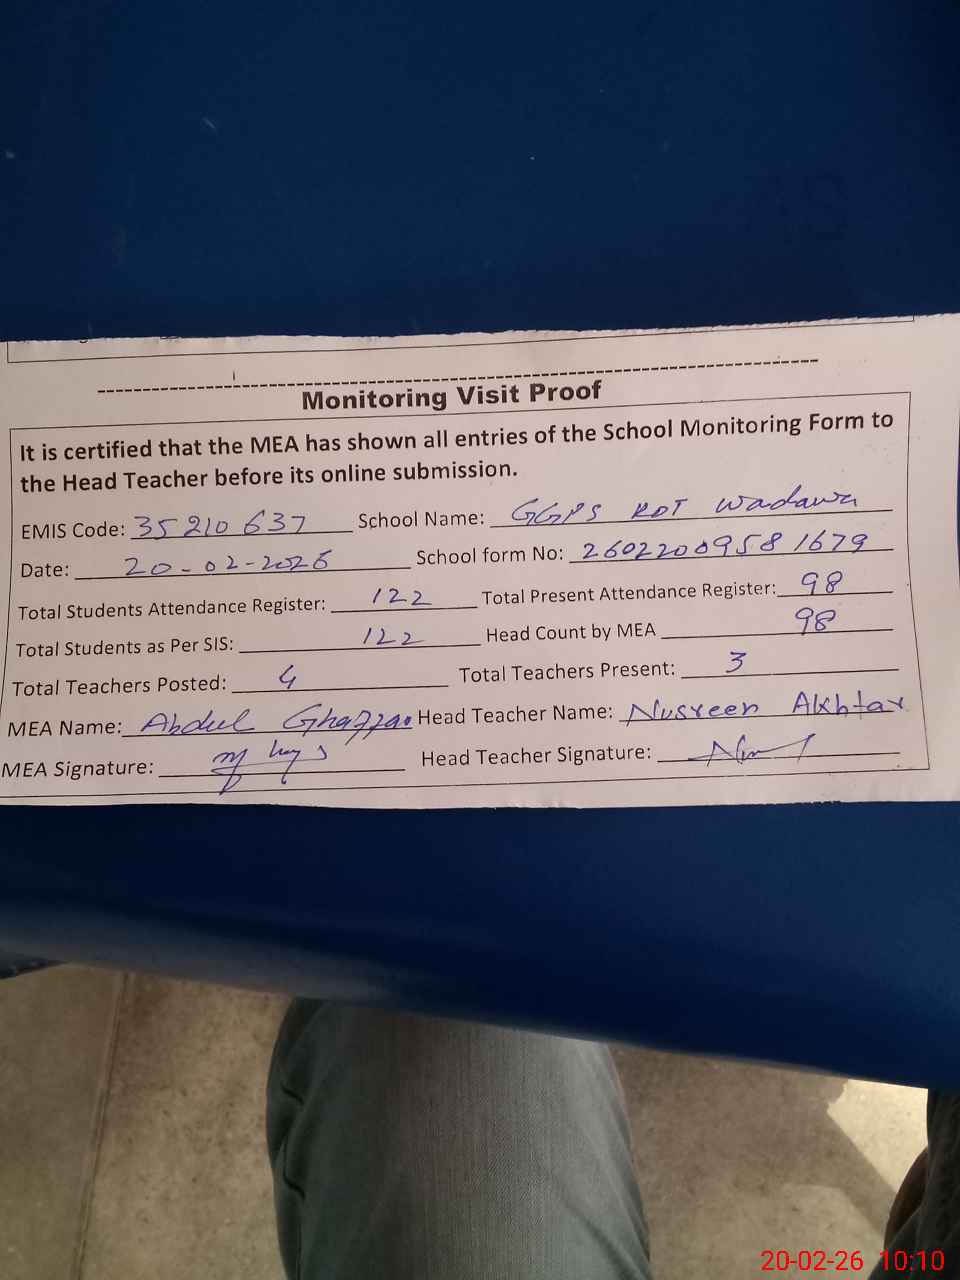 Monitoring Visit Proof
It is certified that the MEA has shown all entries of the School Monitoring Form to
the Head Teacher before its online submission.
EMIS Code: 35210637 School Name: GGPS KOT Wadawa
Date: 20-02-2026 School form No: 26022009581679
Total Students Attendance Register: 122 Total Present Attendance Register: 98
Total Students as Per SIS: 122 Head Count by MEA 98
Total Teachers Posted: 4 Total Teachers Present: 3
MEA Name: Abdul Ghaffar Head Teacher Name: Nusreen Akhtar
MEA Signature: Head Teacher Signature:
20-02-26 10:10